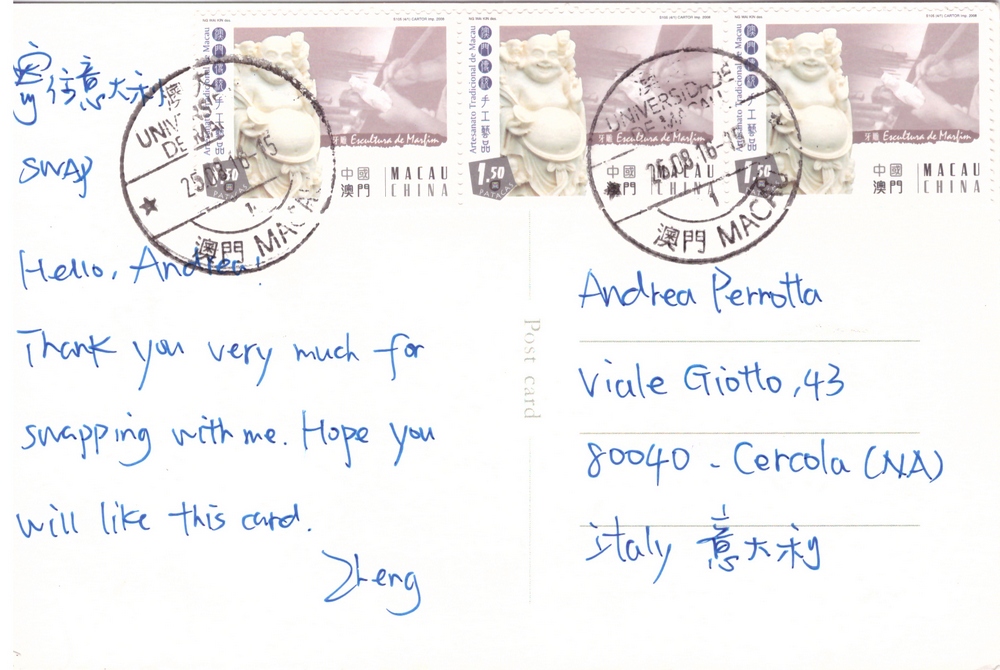 寄往意大利
SWAP
Hello, Andrea!
Thank you very much for
swapping with me. Hope you
will like this card.
Zheng
Post card
Andrea Perrotta
Viale Giotto, 43
80040 - Cercola (NA)
Italy 意大利
NG WAI KIN des.
澳門傳統手工藝品
Artesanato Tradicional de Macau
牙雕 Escultura de Marfim
1.50
PATACAS
中國
澳門
MACAU
CHINA
NG WAI KIN des.
澳門傳統手工藝品
Artesanato Tradicional de Macau
牙雕 Escultura de Marfim
1.50
PATACAS
中國
澳門
MACAU
CHINA
NG WAI KIN des.
澳門傳統手工藝品
Artesanato Tradicional de Macau
牙雕 Escultura de Marfim
1.50
PATACAS
中國
澳門
MACAU
CHINA
UNIVERSIDADE
DE MACAU
澳門 MACAU
UNIVERSIDADE
DE MACAU
澳門 MACAU